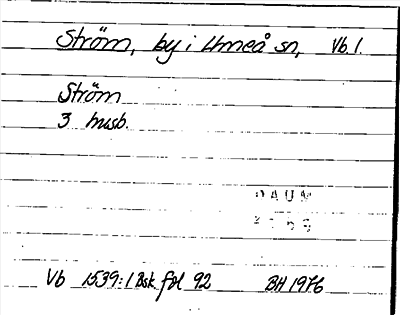 Ström, by i Umeå sn, Vb.l.
Ström
3 husb.
DAUM
Vb 1539:1 Bsk fol 92 BH 1976